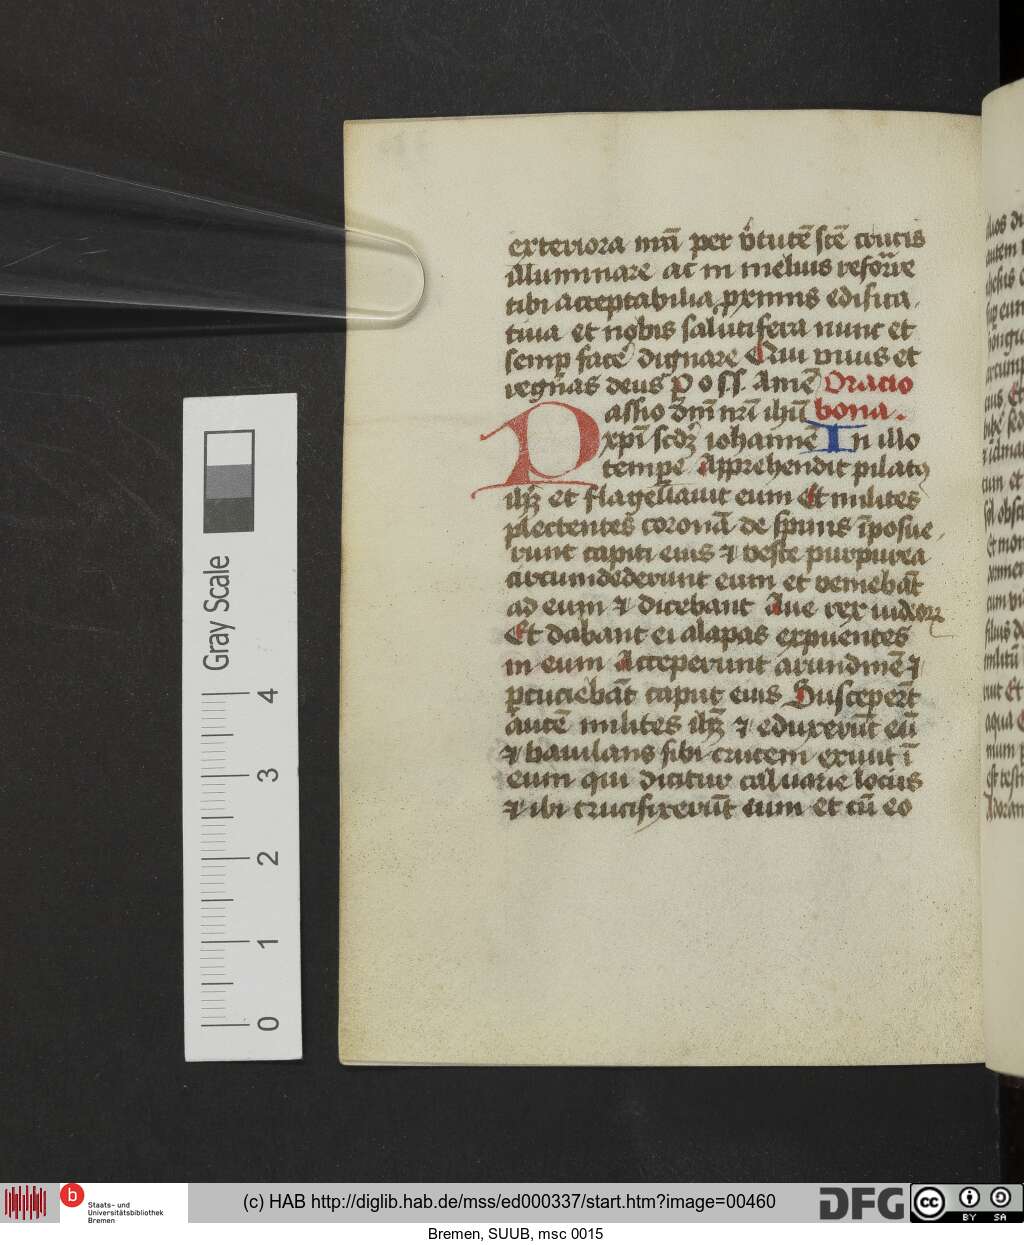 exteriora mea per v̓tutē sc̄e crucis
illuminare ac in melius reform̄re
tibi acceptabilia proximis edifica
tiua et nobis salutifera nunc et
semp face᷑ dignare Qui viuis et
regnas deus Amē Oracio
assio dn̄i nr̄i ihū bona.
xpi scdꝫ iohannē In illo
tempe᷑ Apprehendit pilatꝯ
ihꝫ et flagellauit eum Et milites
plectentes coronā de spinis īposue
runt capiti eius ⁊ veste purpurea
circumdederunt eum et veniebāt
ad eum ⁊ dicebant Aue rex iudeoꝝ
Et dabant ei alapas expuentes
in eum Acceperunt arundinē ⁊
ꝑcuciebāt caput eius Susceper̄t
autē milites ihꝫ ⁊ eduxerūt eū
⁊ baiulans sibi crucem exiuit ī
eum qui dicitur caluarie locus
⁊ ibi crucifixerūt eum et cū eo
Gray Scale
4
3
2
1
0
b
Staats- und
Universitätsbibliothek
Bremen
(c) HAB http://diglib.hab.de/mss/ed000337/start.htm?image=00460
DFG
cc
BY SA
Bremen, SUUB, msc 0015